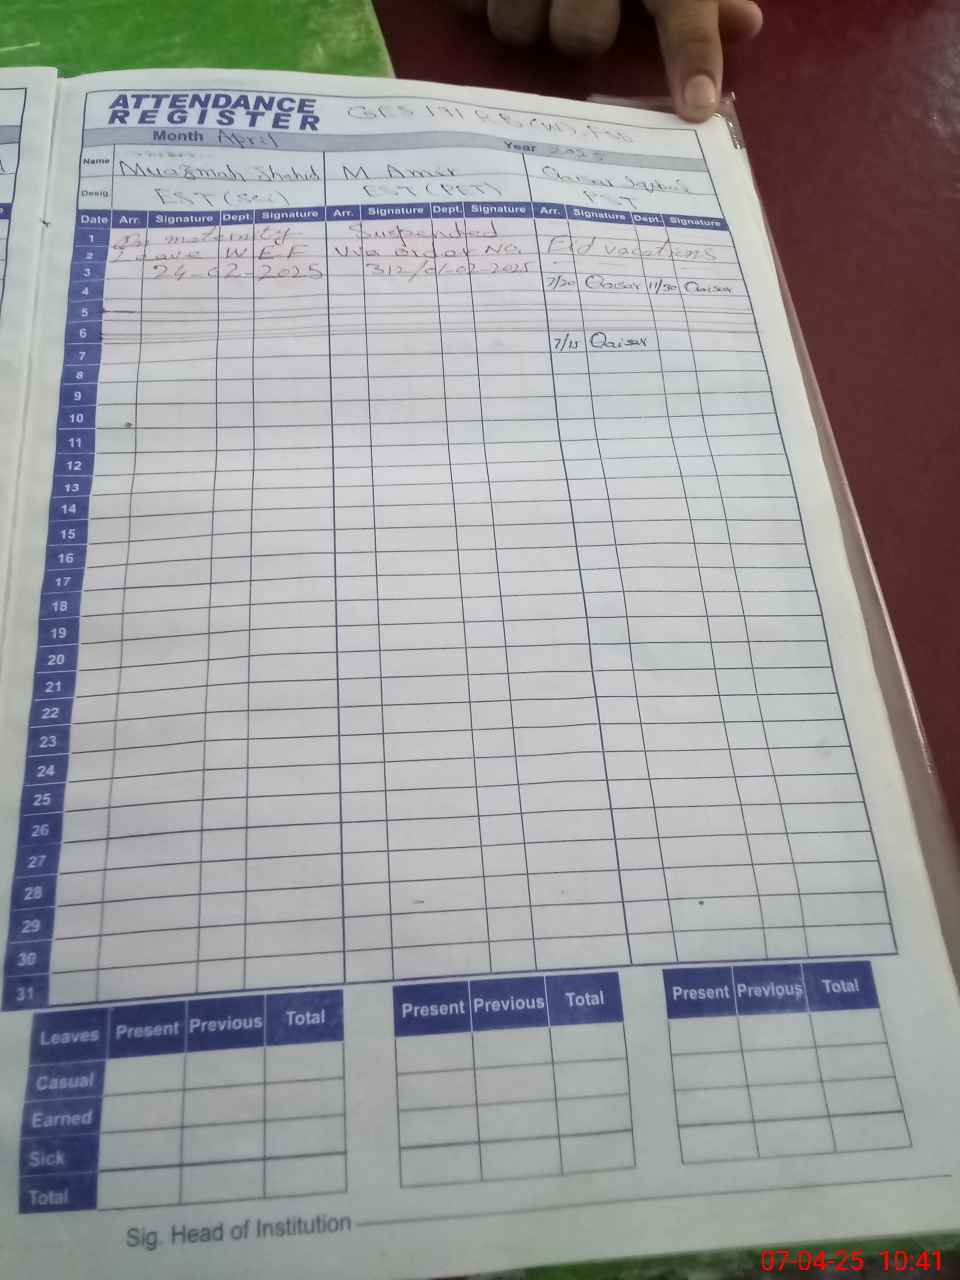 ATTENDANCE
REGISTER
GES 191 RB (W), FSD
Month April
Year 2025
Name Muazmah Shahid M Amir Qaisar Iqbal
Desig. EST (Sci) EST (PET) PST
Date Arr. Signature Dept. Signature Arr. Signature Dept. Signature Arr. Signature Dept. Signature
1 On maternity Suspended
2 Leave W.E.F Via order No. Eid vacations
3 24-02-2025 312/01-02-2025
4 7/20 Qaisar 11/30 Qaisar
5
6
7 7/15 Qaisar
8
9
10
11
12
13
14
15
16
17
18
19
20
21
22
23
24
25
26
27
28
29
30
31
Leaves Present Previous Total Present Previous Total Present Previous Total
Casual
Earned
Sick
Total
Sig. Head of Institution
07-04-25 10:41